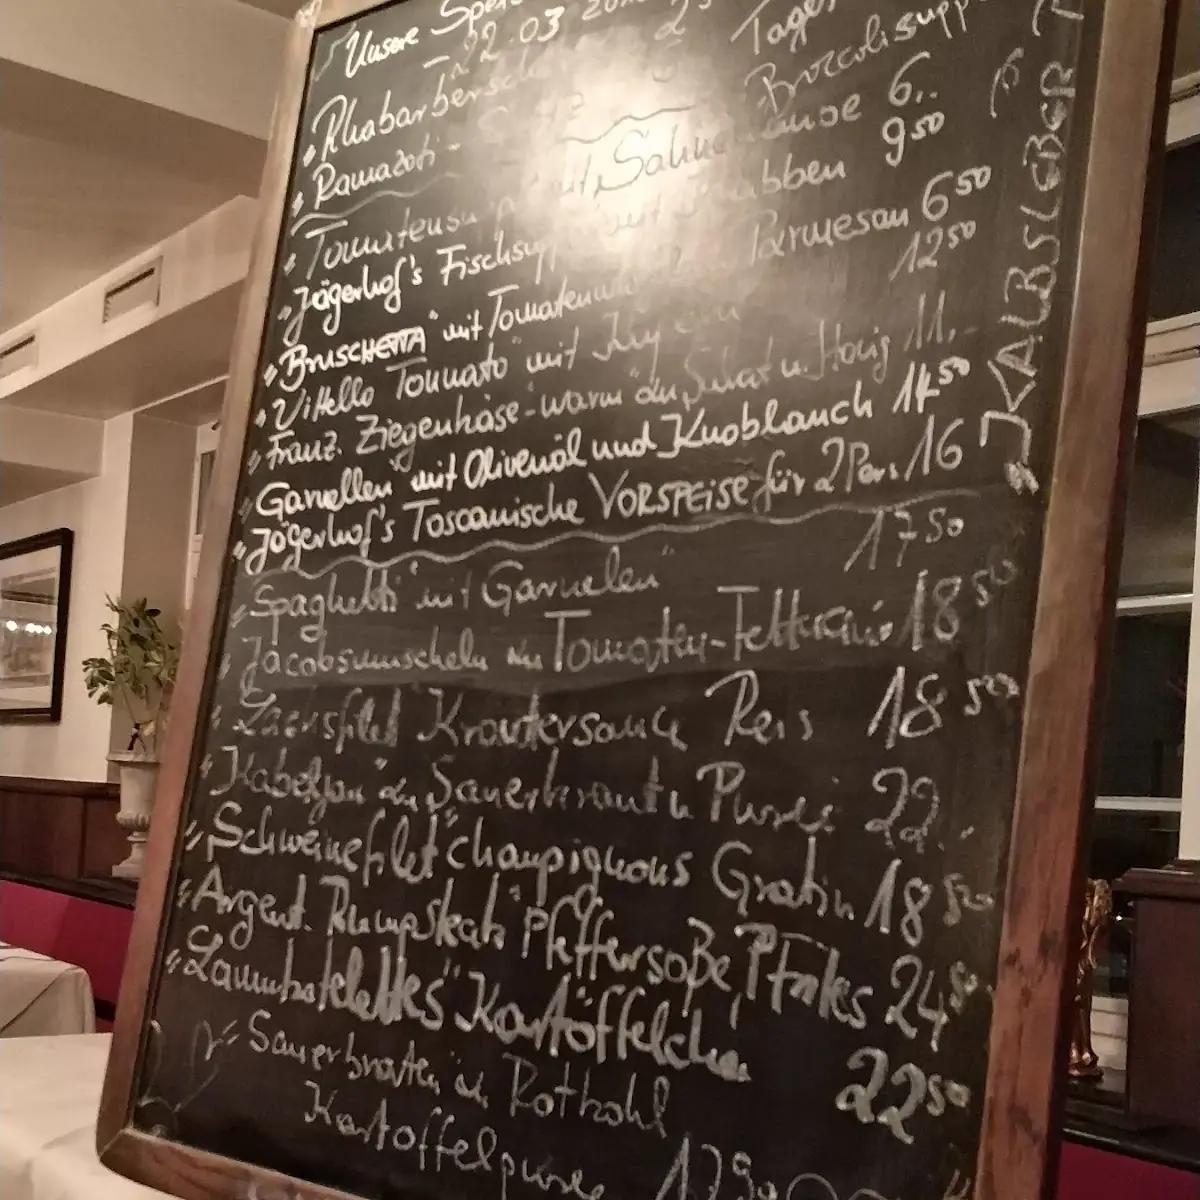 Unsere
22.03
Tages
Rhabarbersch
Broccolisupp
Ramazoti -
Tomatensu mit Sahnehaube 6,.
"Jägerhof's Fischsupp mit Krabben 9 50
"BRUSCHETTA" mit Tomaten Parmesan 6 50
"Vitello Tonnato" mit 12 50
"Franz. Ziegenkäse-warm an Salat u. Honig 11,-
"Garnellen" mit Olivenöl und Knoblauch 14 50
"Jägerhof's Toscanische VORSPEISE für 2 Pers. 16
"Spaghetti mit Garnelen" 17 50
"Jacobsmuscheln in Tomaten-Fettucini 18 50
"Lachsfilet" Kräutersauce Reis 18 50
"Kabeljau" an Sauerkraut u Püree 22.
"Schweinefilet" Champignons Gratin 18 50
"Argent. Rumpsteak" Pfeffersoße, Frites 24 50
"Lammkotelettes" Kartöffelchen 22 50
"Sauerbraten an Rotkohl
Kartoffelpüree 17 90
"KALBSLEBER